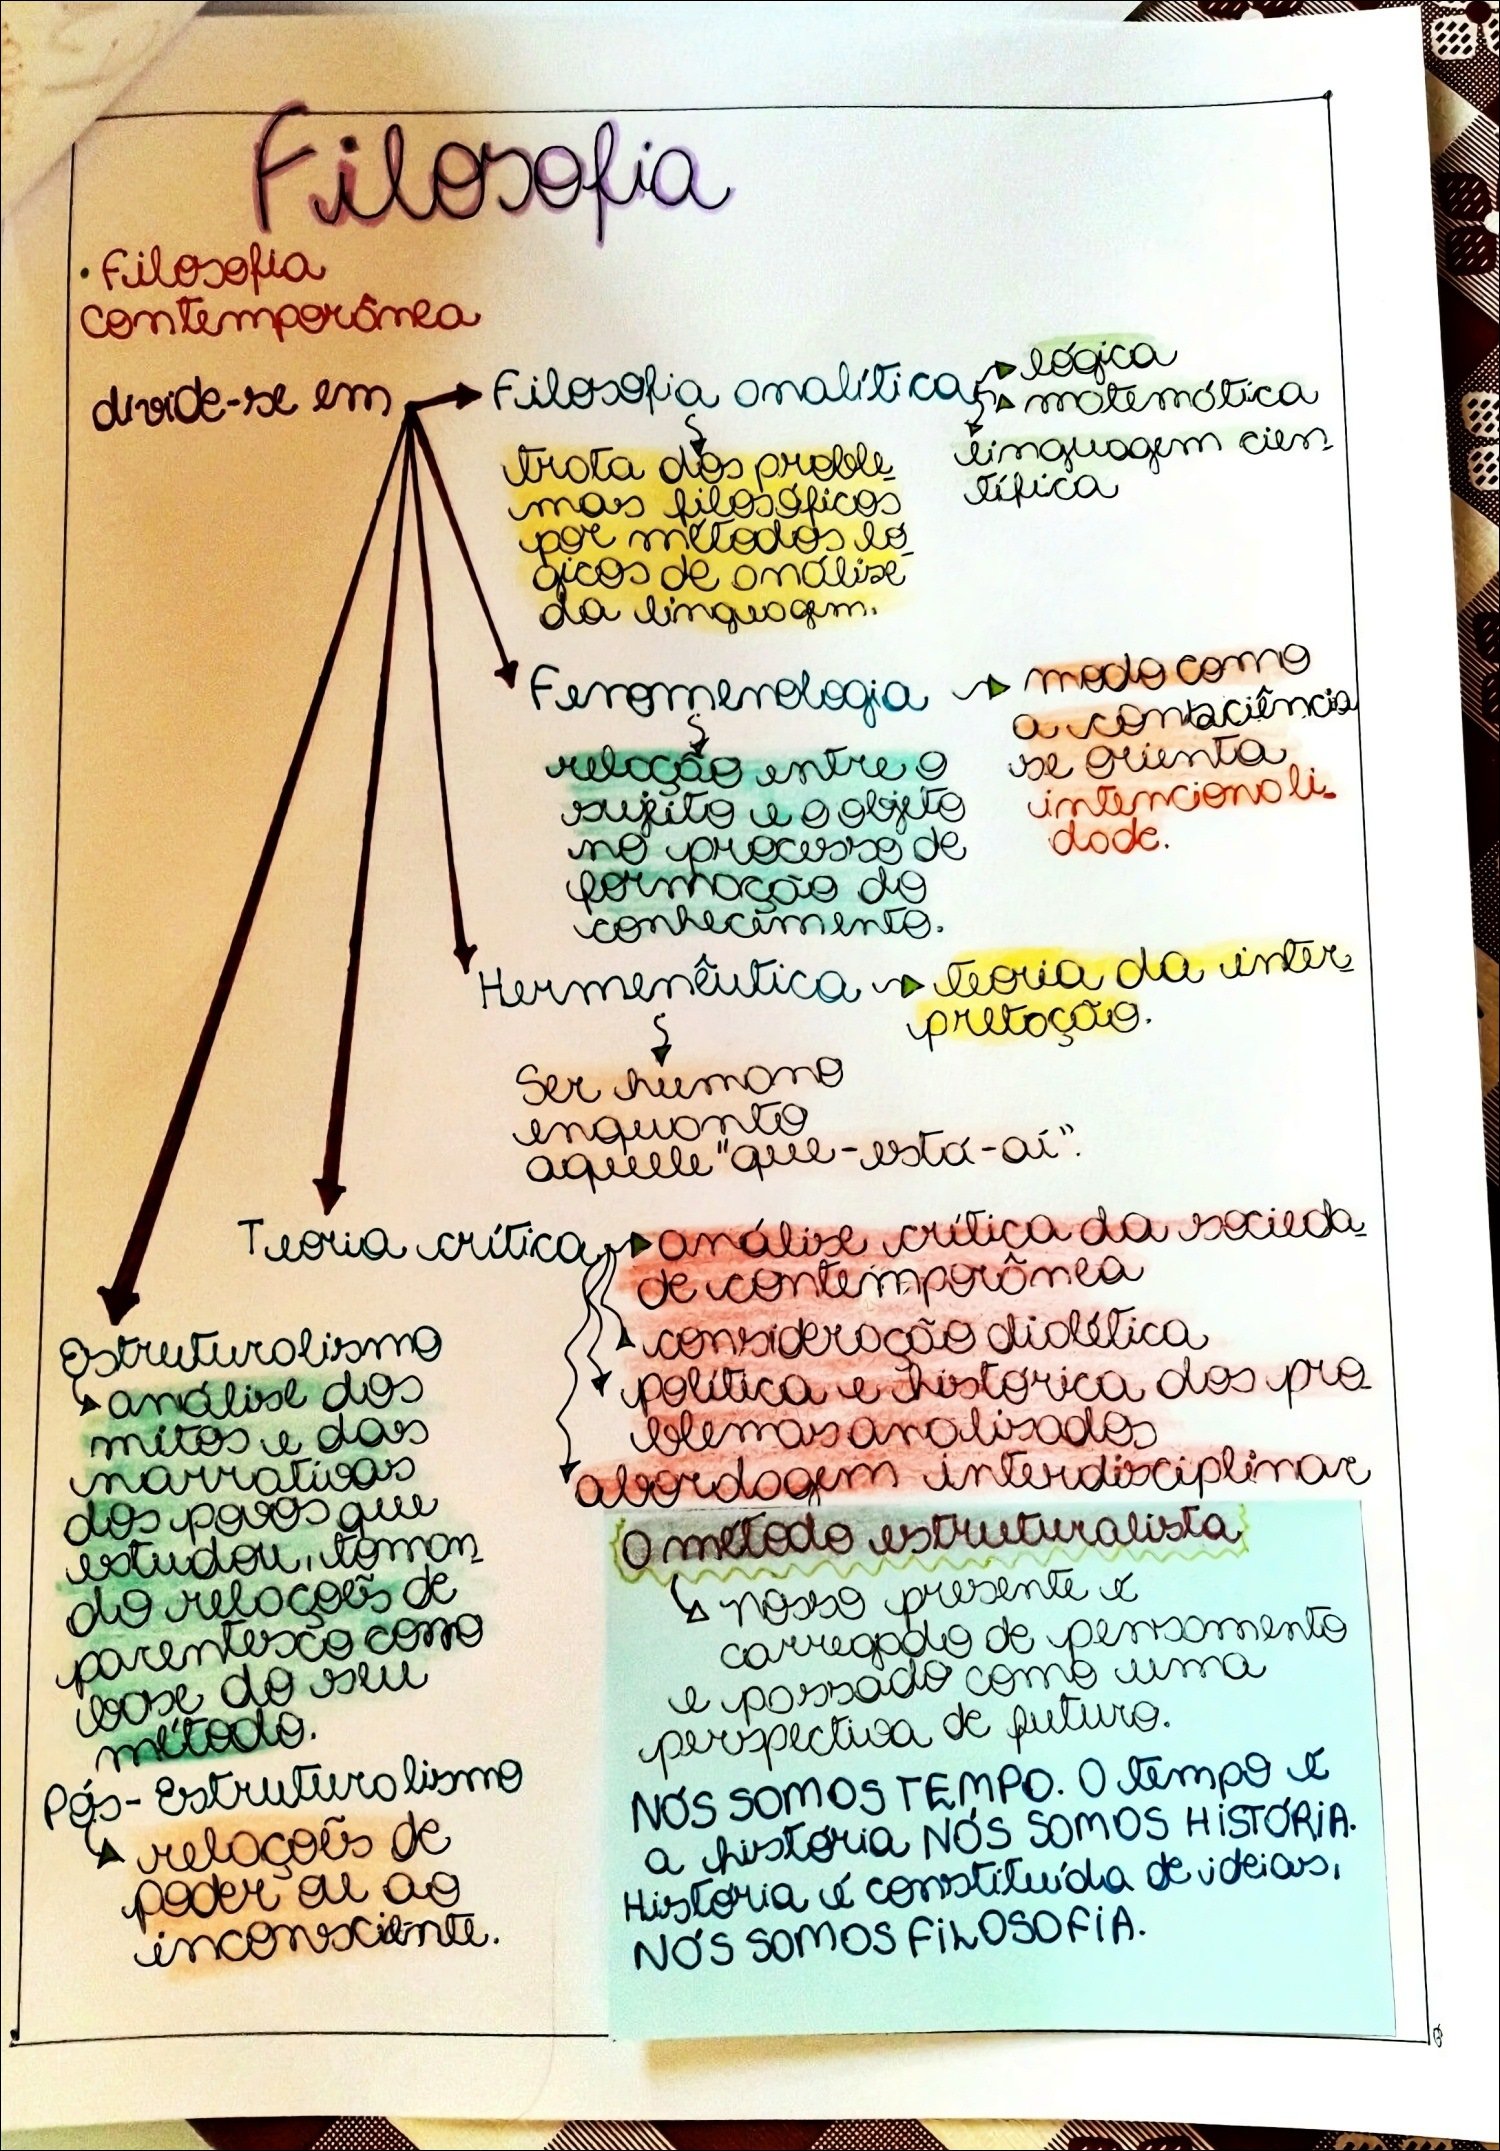 Filosofia
· Filosofia
contemporânea
divide-se em
Filosofia analítica
lógica
matemática
linguagem cien-
tífica
trata dos proble-
mas filosóficos
por métodos ló-
gicos de análise
da linguagem.
Fenomenologia
modo como
a consciência
se orienta
intencionali-
dade.
relação entre o
sujeito e o objeto
no processo de
formação do
conhecimento.
Hermenêutica
teoria da inter-
pretação.
Ser humano
enquanto
aquele "que-está-aí".
Teoria crítica
análise crítica da socieda-
de contemporânea
consideração dialética
política e histórica dos pro-
blemas analisados
abordagem interdisciplinar
Estruturalismo
análise dos
mitos e das
narrativas
dos povos que
estudou, toman-
do relações de
parentesco como
base do seu
método.
Pós-Estruturalismo
relações de
poder ou ao
inconsciente.
O método estruturalista
nosso presente é
carregado de pensamento
e passado como uma
perspectiva de futuro.
NÓS SOMOS TEMPO. O tempo é
a história NÓS SOMOS HISTÓRIA.
História é constituída de ideias,
NÓS SOMOS FILOSOFIA.